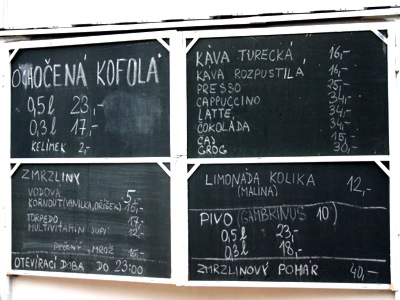 OCHOČENÁ KOFOLA
0,5l 23,-
0,3l 17,-
KELÍMEK 2,-
KÁVA TURECKÁ 16,-
KÁVA ROZPUSTILÁ 16,-
PRESSO 25,-
CAPPUCCINO 34,-
LATTE 34,-
ČOKOLÁDA 34,-
ČAJ 15,-
GROG 30,-
ZMRZLINY
VODOVÁ 5
KORNOUT (VANILKA, OŘÍŠEK)
TORPÉDO
MULTIVITAMIN JUPÍ 12,-
PEČENÝ MROŽ 15,-
OTEVÍRACÍ DOBA DO 23:00
LIMONÁDA KOLIKA 12,-
(MALINA)
PIVO (GAMBRINUS 10)
0,5l 23,-
0,3l 18,-
ZMRZLINOVÝ POHÁR 40,-